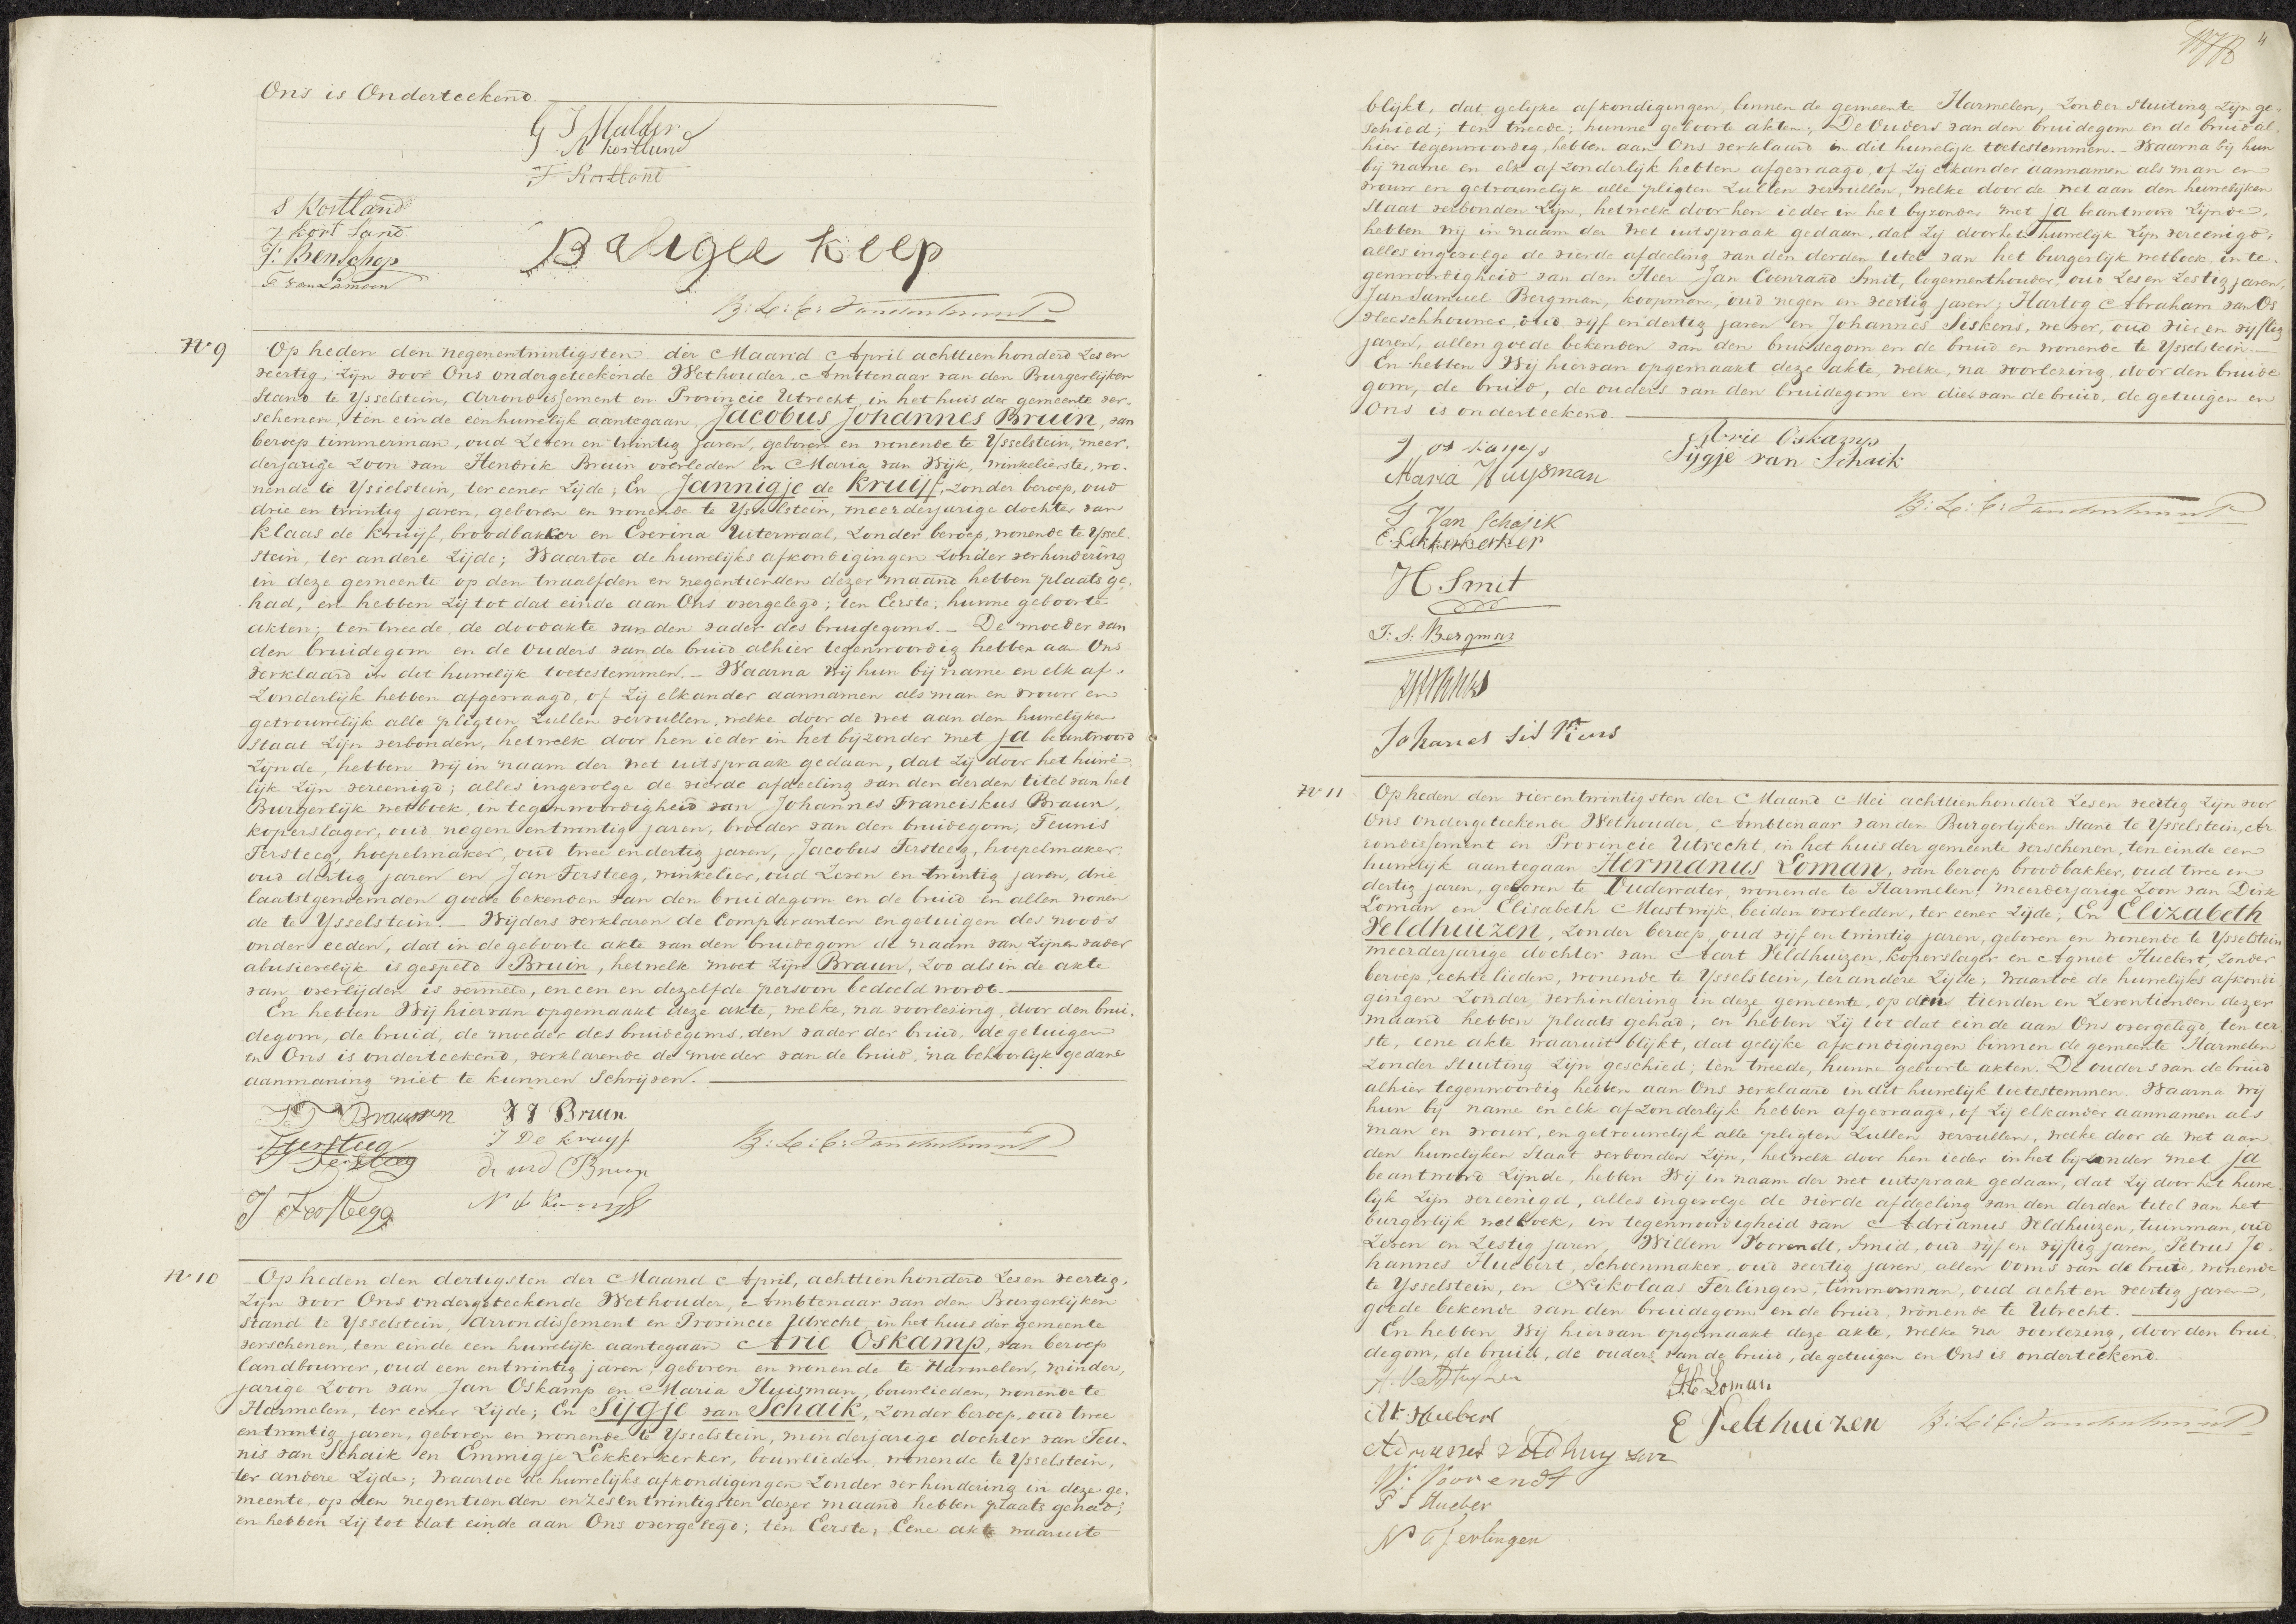 Ons is Onderteekend.
G J Mulder
A Kortlund
F Kortlant
S Kortland
J Kort land
J: Benschop
F van Lamoen
Baligje Keep
N 9
Op heden den negenentwintigsten der Maand April achttienhonderd Zes en
veertig, Zijn voor Ons ondergeteekende Wethouder, Ambtenaar van den Burgerlijken
Stand te Ysselstein, Arrondissement en Provincie Utrecht, in het huis der gemeente ver-
schenen, ten einde een huwelijk aantegaan, Jacobus Johannes Bruin, van
beroep timmerman, oud Zeven en twintig jaren, geboren en wonende te Ysselstein, meer-
derjarige Zoon van Hendrik Bruin overleden en Maria van Wijk, winkelierster, wo-
nende te Ysselstein, ter eener Zijde; En Jannigje de Kruijf, Zonder beroep, oud
drie en twintig jaren, geboren en wonende te Ysselstein, meerderjarige dochter van
Klaas de Kruijf, broodbakker en Everina Uiterwaal, Zonder beroep, wonende te Yssel-
stein, ter andere Zijde; Waartoe de huwelijks afkondigingen Zonder verhindering
in deze gemeente op den twaalfden en negentienden dezer maand hebben plaats ge-
had, en hebben Zij tot dat einde aan Ons overgelegd; ten Eerste; hunne geboorte
akten; ten tweede, de doodakte van den vader des bruidegoms. – De moeder van
den bruidegom en de Ouders van de bruid alhier tegenwoordig hebben aan Ons
verklaard in dit huwelijk toetestemmen. – Waarna Wij hun bij name en elk af-
Zonderlijk hebben afgevraagd, of Zij elkander aannamen als man en vrouw en
getrouwelijk alle pligten Zullen vervullen, welke door de wet aan den huwelijken
Staat Zijn verbonden, hetwelk door hen ieder in het bijzonder met ja beantwoord
Zijnde, hebben Wij in naam der Wet uitspraak gedaan, dat Zij door het huwe-
lijk Zijn vereenigd; alles ingevolge de vierde afdeeling van den derden titel van het
Burgerlijk wetboek, in tegenwoordigheid van Johannes Franciskus Braun,
koperslager, oud negen entwintig jaren, broeder van den bruidegom; Teunis
Fersteeg, hoepelmaker, oud twee endertig jaren, Jacobus Fersteeg, hoepelmaker
oud dertig jaren en Jan Fersteeg, winkelier, oud Zeven en twintig jaren, drie
laatstgenoemden goede bekenden van den bruidegom en de bruid en allen wonen
de te Ysselstein. – Wijders verklaren de Comparanten en getuigen des noods
onder eeden, dat in de geboorte akte van den bruidegom de naam van Zijnen vader
abusievelijk is gespeld Bruin, hetwelk moet Zijn Braun, Zoo als in de akte
van overlijden is vermeld, en een en dezelfde persoon bedoeld wordt.
En hebben Wij hiervan opgemaakt deze akte, welke, na voorlezing, door den brui-
degom, de bruid, de moeder des bruidegoms, den vader der bruid, de getuigen
en Ons is onderteekend, verklarende de moeder van de bruid, na behoorlijk gedane
aanmaning niet te kunnen Schrijven.
J J Bruin
J De Kruyf
J Fersteeg
N 10
Op heden den dertigsten der Maand April, achttienhonderd Zes en veertig,
Zijn voor Ons ondergeteekende Wethouder, Ambtenaar van den Burgerlijken
Stand te Ysselstein, Arrondissement en Provincie Utrecht, in het huis der gemeente
verschenen, ten einde een huwelijk aantegaan Arie Oskamp, van beroep
landbouwer, oud een entwintig jaren, geboren en wonende te Harmelen, minder-
jarige Zoon van Jan Oskamp en Maria Huisman, bouwlieden, wonende te
Harmelen, ter eener Zijde; En Sijgje van Schaik, Zonder beroep, oud twee
entwintig jaren, geboren en wonende te Ysselstein, minderjarige dochter van Teu-
nis van Schaik en Emmigje Lekkerkerker, bouwlieden, wonende te Ysselstein,
ter andere Zijde; Waartoe de huwelijks afkondigingen Zonder verhindering in deze ge-
meente, op den negentienden en zesentwintigsten dezer maand hebben plaats gehad;
en hebben Zij tot dat einde aan Ons overgelegd; ten Eerste; Eene akte waaruit
4
blijkt, dat gelijke afkondigingen, binnen de gemeente Harmelen, Zonder stuiting Zijn ge-
schied; ten tweede; hunne geboorte akten; De Ouders van den bruidegom en de bruid al-
hier tegenwoordig, hebben aan Ons verklaard in dit huwelijk toetestemmen. – Waarna Wij hun
bij name en elk afzonderlijk hebben afgevraagd, of Zij elkander aannamen als man en
vrouw en getrouwelijk alle pligten Zullen vervullen, welke door de wet aan den huwelijken
Staat verbonden Zijn, hetwelk door hen ieder in het byzonder met ja beantwoord Zijnde,
hebben Wij in naam der Wet uitspraak gedaan, dat Zij door het huwelijk Zijn vereenigd,
alles ingevolge de vierde afdeeling van den derden titel van het burgerlijk wetboek, in te-
genwoordigheid van den Heer Jan Coenraad Smit, logementhouder, oud Zes en Zestig jaren,
Jan Samuel Bergman, koopman, oud negen en veertig jaren; Hartog Abraham van Os
vleeschhouwer, oud vijf en dertig jaren en Johannes Siskens, wever, oud vier en vijftig
jaren, allen goede bekenden van den bruidegom en de bruid en wonende te Ysselstein. –
En hebben Wij hiervan opgemaakt deze akte, welke, na voorlezing, door den bruide
gom, de bruid, de ouders van den bruidegom en die van de bruid, de getuigen en
Ons is onderteekend.
Arie Oskamp
J os kamp
Sijgje van Schaik
Maria Huysman
T Van Schajik
E. Lekkerkerker
H Smit
J: S: Bergman
N 11
Op heden den vierentwintigsten der Maand Mei achttienhonderd Zes en veertig Zijn voor
Ons Ondergeteekende Wethouder, Ambtenaar van den Burgerlijken Stand te Ysselstein, Ar-
rondissement en Provincie Utrecht, in het huis der gemeente verschenen, ten einde een
huwelijk aantegaan Hermanus Loman, van beroep broodbakker, oud twee en
dertig jaren, geboren te Oudewater, wonende te Harmelen, meerderjarige Zoon van Dirk
Loman en Elisabeth Mastwijk, beiden overleden, ter eener Zijde; En Elizabeth
Veldhuizen, Zonder beroep, oud vijf en twintig jaren, geboren en wonende te Ysselstein
meerderjarige dochter van Aart Veldhuizen, koperslager en Agnet Huebert, Zonder
beroep, echtelieden, wonende te Ysselstein, ter andere Zijde; Waartoe de huwelijks afkondi
gingen Zonder verhindering in deze gemeente, op den tienden en Zeventienden dezer
maand hebben plaats gehad, en hebben Zij tot dat einde aan Ons overgelegd, ten eer
ste, eene akte waaruit blijkt, dat gelijke afkondigingen binnen de gemeente Harmelen
Zonder Stuiting Zijn geschied; ten tweede, hunne geboorte akten. De ouders van de bruid
alhier tegenwoordig hebben aan Ons verklaard in dit huwelijk toetestemmen. Waarna Wij
hun bij name en elk afzonderlijk hebben afgevraagd, of Zij elkander aannamen als
man en vrouw, en getrouwelijk alle pligten Zullen vervullen, welke door de wet aan
den huwelijken Staat verbonden Zijn, hetwelk door hen ieder in het bijzonder met ja
beantwoord Zijnde, hebben Wij in naam der wet uitspraak gedaan, dat Zij door het huwe
lijk Zijn vereenigd, alles ingevolge de vierde afdeeling van den derden titel van het
burgerlijk wetboek, in tegenwoordigheid van Adrianus Veldhuizen, tuinman, oud
Zeven en Zestig jaren, Willem Voorendt, Smid, oud vijf en vijftig jaren, Petrus Jo-
hannes Huebert, Schoenmaker, oud veertig jaren, allen Ooms van de bruid, wonende
te Ysselstein, en Nikolaas Ferlingen, timmerman, oud acht en veertig jaren,
goede bekende van den bruidegom en de bruid, wonende te Utrecht.
En hebben Wij hiervan opgemaakt deze akte, welke na voorlezing, door den brui-
degom, de bruid, de ouders van de bruid, de getuigen en Ons is onderteekend.
H Loman
At Huebert
E Velthuizen
W: Voorendt
P J Hueber
N Ferlingen